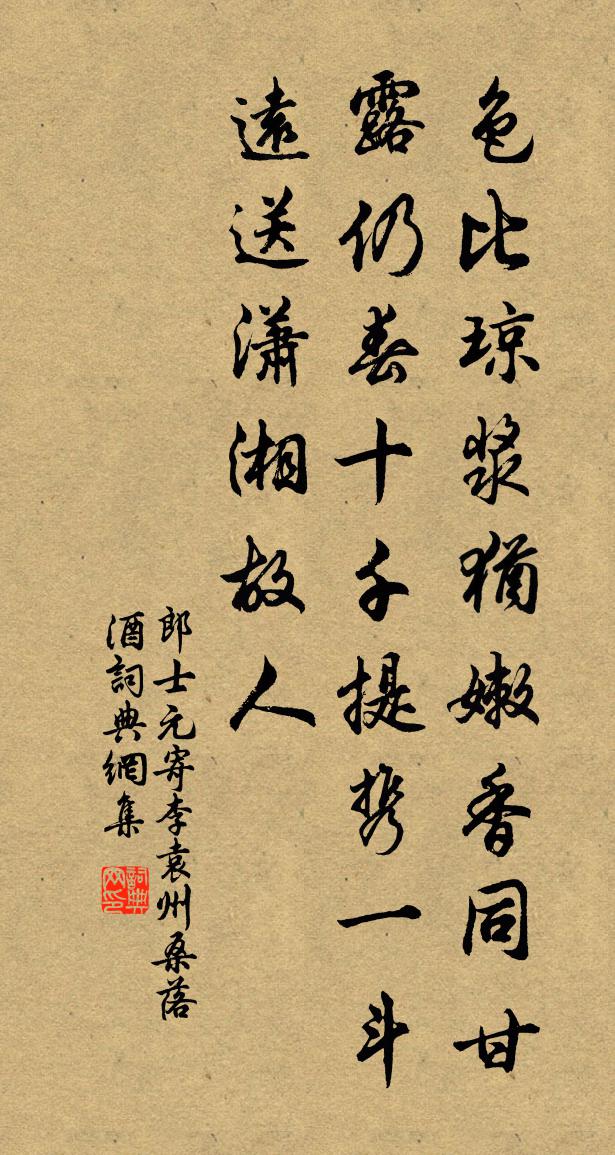 色比琼漿猶嫩香同甘
露仍春十千提携一斗
遠送瀟湘故人
郎士元寄李袁州桑落
酒詞典網集
詞典網印